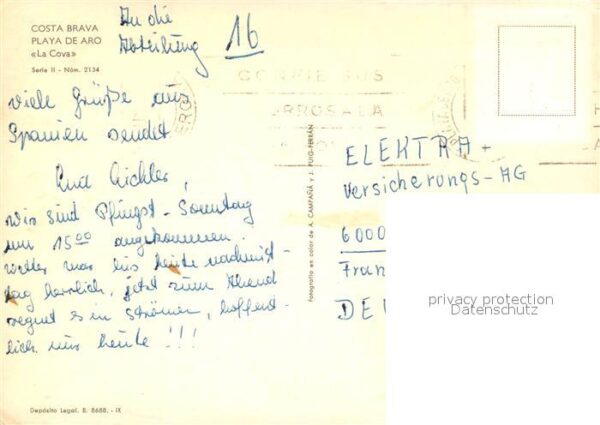 COSTA BRAVA
PLAYA DE ARO
«La Cova»
Serie II - Núm. 2134
An die
Abteilung 16
CORRESA
Viele Grüße aus
Spanien sendet
Eichler,
wir sind Pfingst-Sonntag
um 15⁰⁰ angekommen.
Wetter war bis heute nachmit-
tag herrlich, jetzt zum Abend
regnet es in Strömen, hoffent-
lich nur heute !!!
Depósito Legal. B. 8688. - IX
Fotografía en color de A. CAMPAÑÁ y J. PUIG-FERRÁN
ELEKTRA -
Versicherungs-AG
6000
Fran
DE
privacy protection
Datenschutz